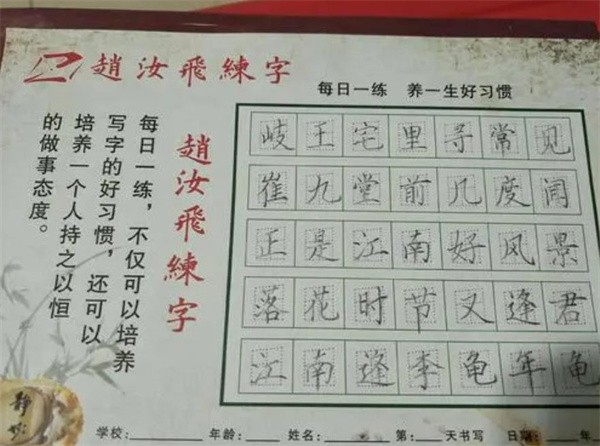 趙汝飛練字
每日一练 养一生好习惯
岐王宅里寻常见
崔九堂前几度闻
正是江南好风景
落花时节又逢君
江南逢李龟年龟
趙汝飛練字
每日一练，不仅可以培养
写字的好习惯，还可以
培养一个人持之以恒
的做事态度。
静
学校:________ 年龄:____ 姓名:________ 第:____天书写 日期:____年